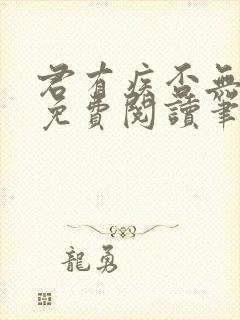 君有疾否無
免費閱讀筆
龍勇